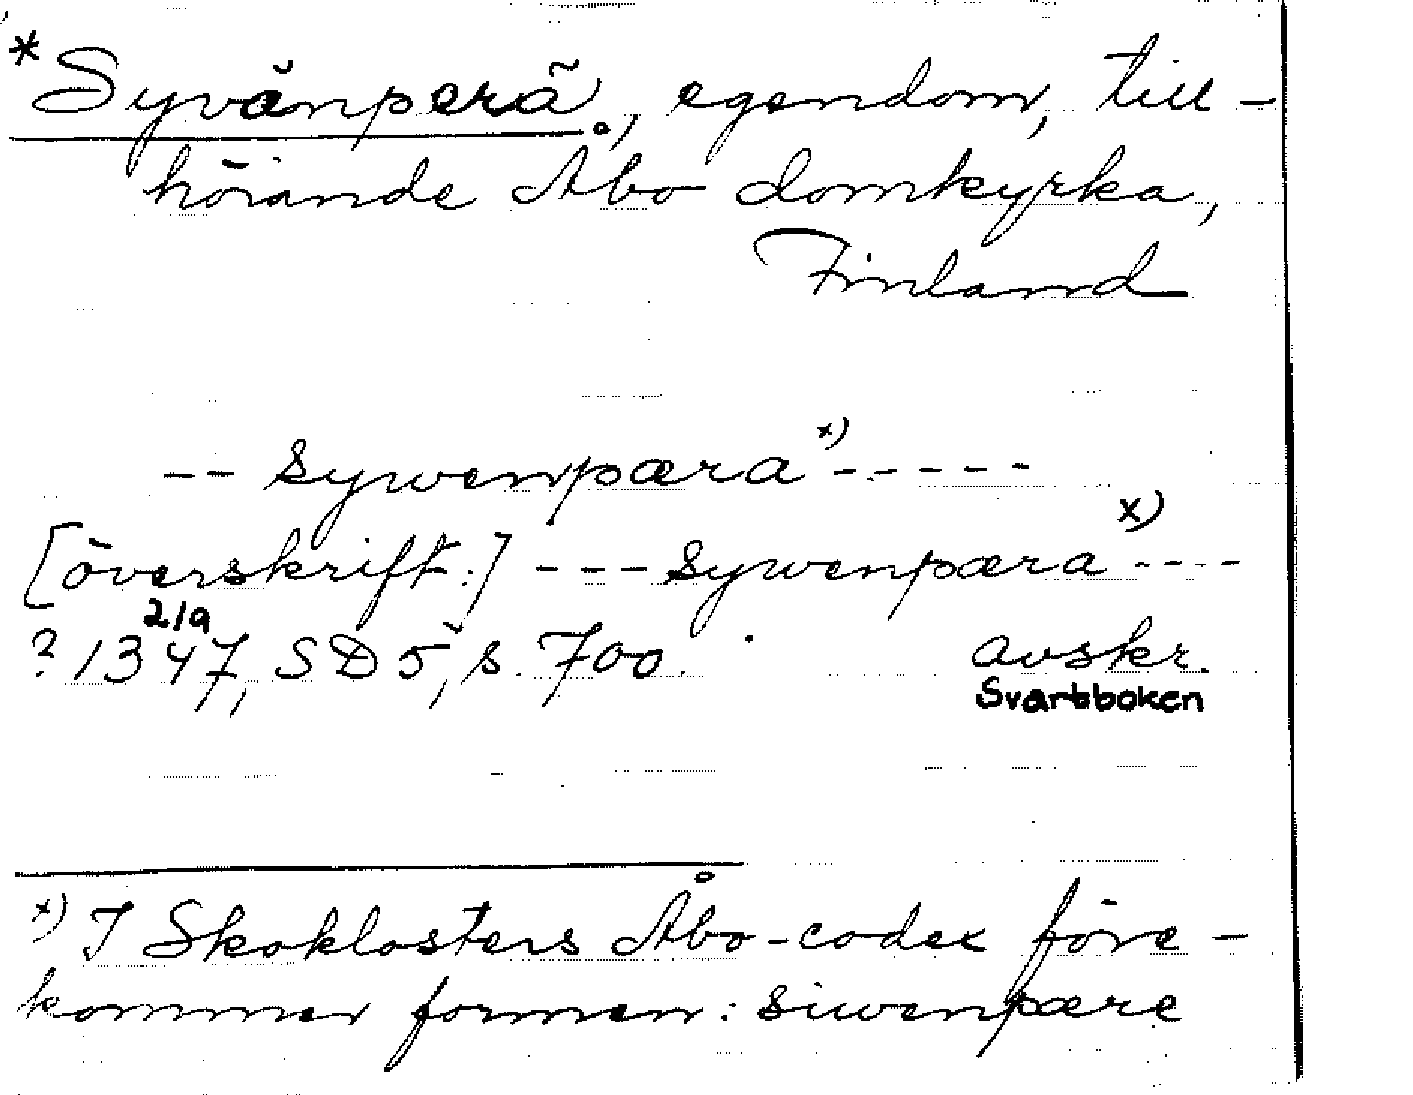 * Syvänperä, egendom, till-
hörande Åbo domkyrka,
Finland
-- sywenpæra x) -----
[överskrift:] --- sywenpæra x) ----
2/9
? 1347, SD 5, s. 700. avskr.
Svartboken
x) I Skoklosters Åbo-codex före-
kommer formen: siwenpære